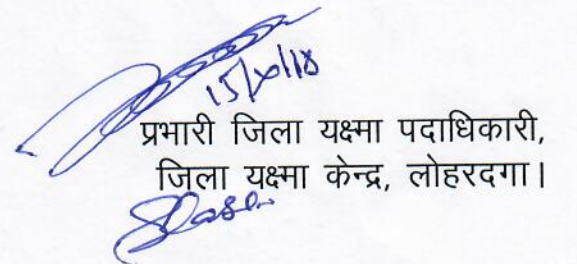 15/x/18
प्रभारी जिला यक्ष्मा पदाधिकारी,
जिला यक्ष्मा केन्द्र, लोहरदगा।